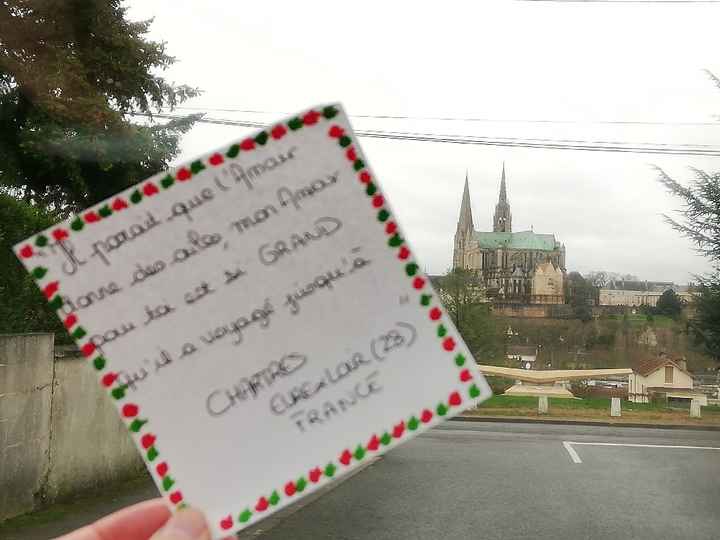 "Il parait que l'Amour
donne des ailes, mon Amour
pour toi est si GRAND
qu'il a voyagé jusqu'à "
CHARTRES
EURE et LOIR (28)
FRANCE